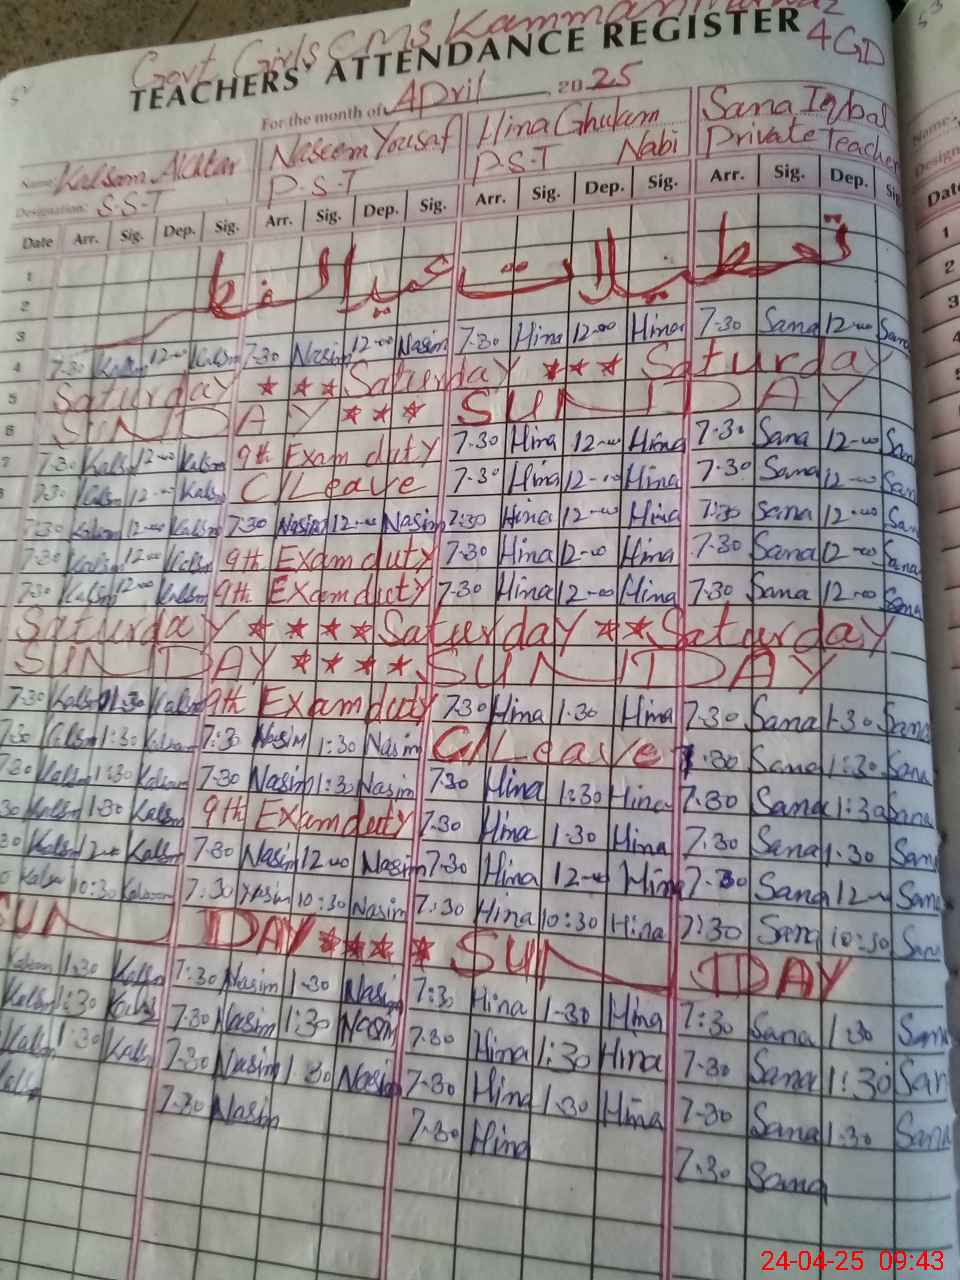 Govt Girls CMS
TEACHERS' ATTENDANCE REGISTER 4GD
For the month of April 2025
Name: Kalsom Akhtar Naseem Yousaf Hina Ghulam Nabi Sana Iqbal
Designation: S.S.T P.S.T P.S.T Private Teacher
Date Arr. Sig. Dep. Sig. Arr. Sig. Dep. Sig. Arr. Sig. Dep. Sig. Arr. Sig. Dep.
1
2
تعطیلات عید الفطر
3
4 7:30 Kalsm 12-00 Kalsm 7-30 Nasim 12-00 Nasim 7-30 Hina 12-00 Hina 7-30 Sana 12-00 Sana
5 Saturday *** Saturday *** Saturday
6 SUNDAY *** SUNDAY
7-30 Kalsm 12-00 Kalsm 9th Exam duty 7-30 Hina 12-00 Hina 7-30 Sana 12-00 San
7-30 Kalsm 12-00 Kalsm C/Leave 7-30 Hina 12-00 Hina 7-30 Sana 12-00 San
7:30 Kalsom 12-00 Kalsm 7:30 Nasim 12-00 Nasim 7:30 Hina 12-00 Hina 7:30 Sana 12-00 San
7-30 Kalsm 12-00 Kalsm 9th Exam duty 7-30 Hina 12-00 Hina 7-30 Sana 12-00 Sana
7-30 Kalsm 12-00 Kalsm 9th Exam duty 7-30 Hina 12-00 Hina 7-30 Sana 12-00 Sana
Saturday **** Saturday ** Saturday
SUNDAY **** SUNDAY
7-30 Kalsm 1:30 Kalsm 9th Exam duty 7-30 Hina 1-30 Hina 7-30 Sana 1-30 Sana
7:30 Kalsm 1:30 Kalsom 7:30 Nasim 1:30 Nasim C/Leave 7:30 Sana 1:30 Sana
7:30 Kalsm 1:30 Kalsom 7-30 Nasim 1:30 Nasim 7:30 Hina 1:30 Hina 7-30 Sana 1:30 Sana
30 Kalsm 1-30 Kalsm 9th Exam duty 7-30 Hina 1-30 Hina 7:30 Sana 1:30 San
30 Kalsm 12-00 Kalsm 7-30 Nasim 12-00 Nasim 7-30 Hina 12-00 Hina 7-30 Sana 12-00 San
0 Kalsm 10:30 Kalsom 7:30 Nasim 10:30 Nasim 7:30 Hina 10:30 Hina 7:30 Sana 10:30 San
SUNDAY **** SUNDAY
Kalsom 1:30 Kalsm 7:30 Nasim 1-30 Nasim 7:30 Hina 1-30 Hina 7:30 Sana 1:30 Sana
Kalsm 1:30 Kalsm 7-30 Nasim 1:30 Nasim 7-30 Hina 1:30 Hina 7-30 Sana 1:30 San
Kalsm 1:30 Kalsm 7-30 Nasim 1:30 Nasim 7-30 Hina 1-30 Hina 7-30 Sana 1:30 Sana
7-30 Nasim 7-30 Hina 7-30 Sana
Name:
Date
1
2
3
4
5
6
24-04-25 09:43